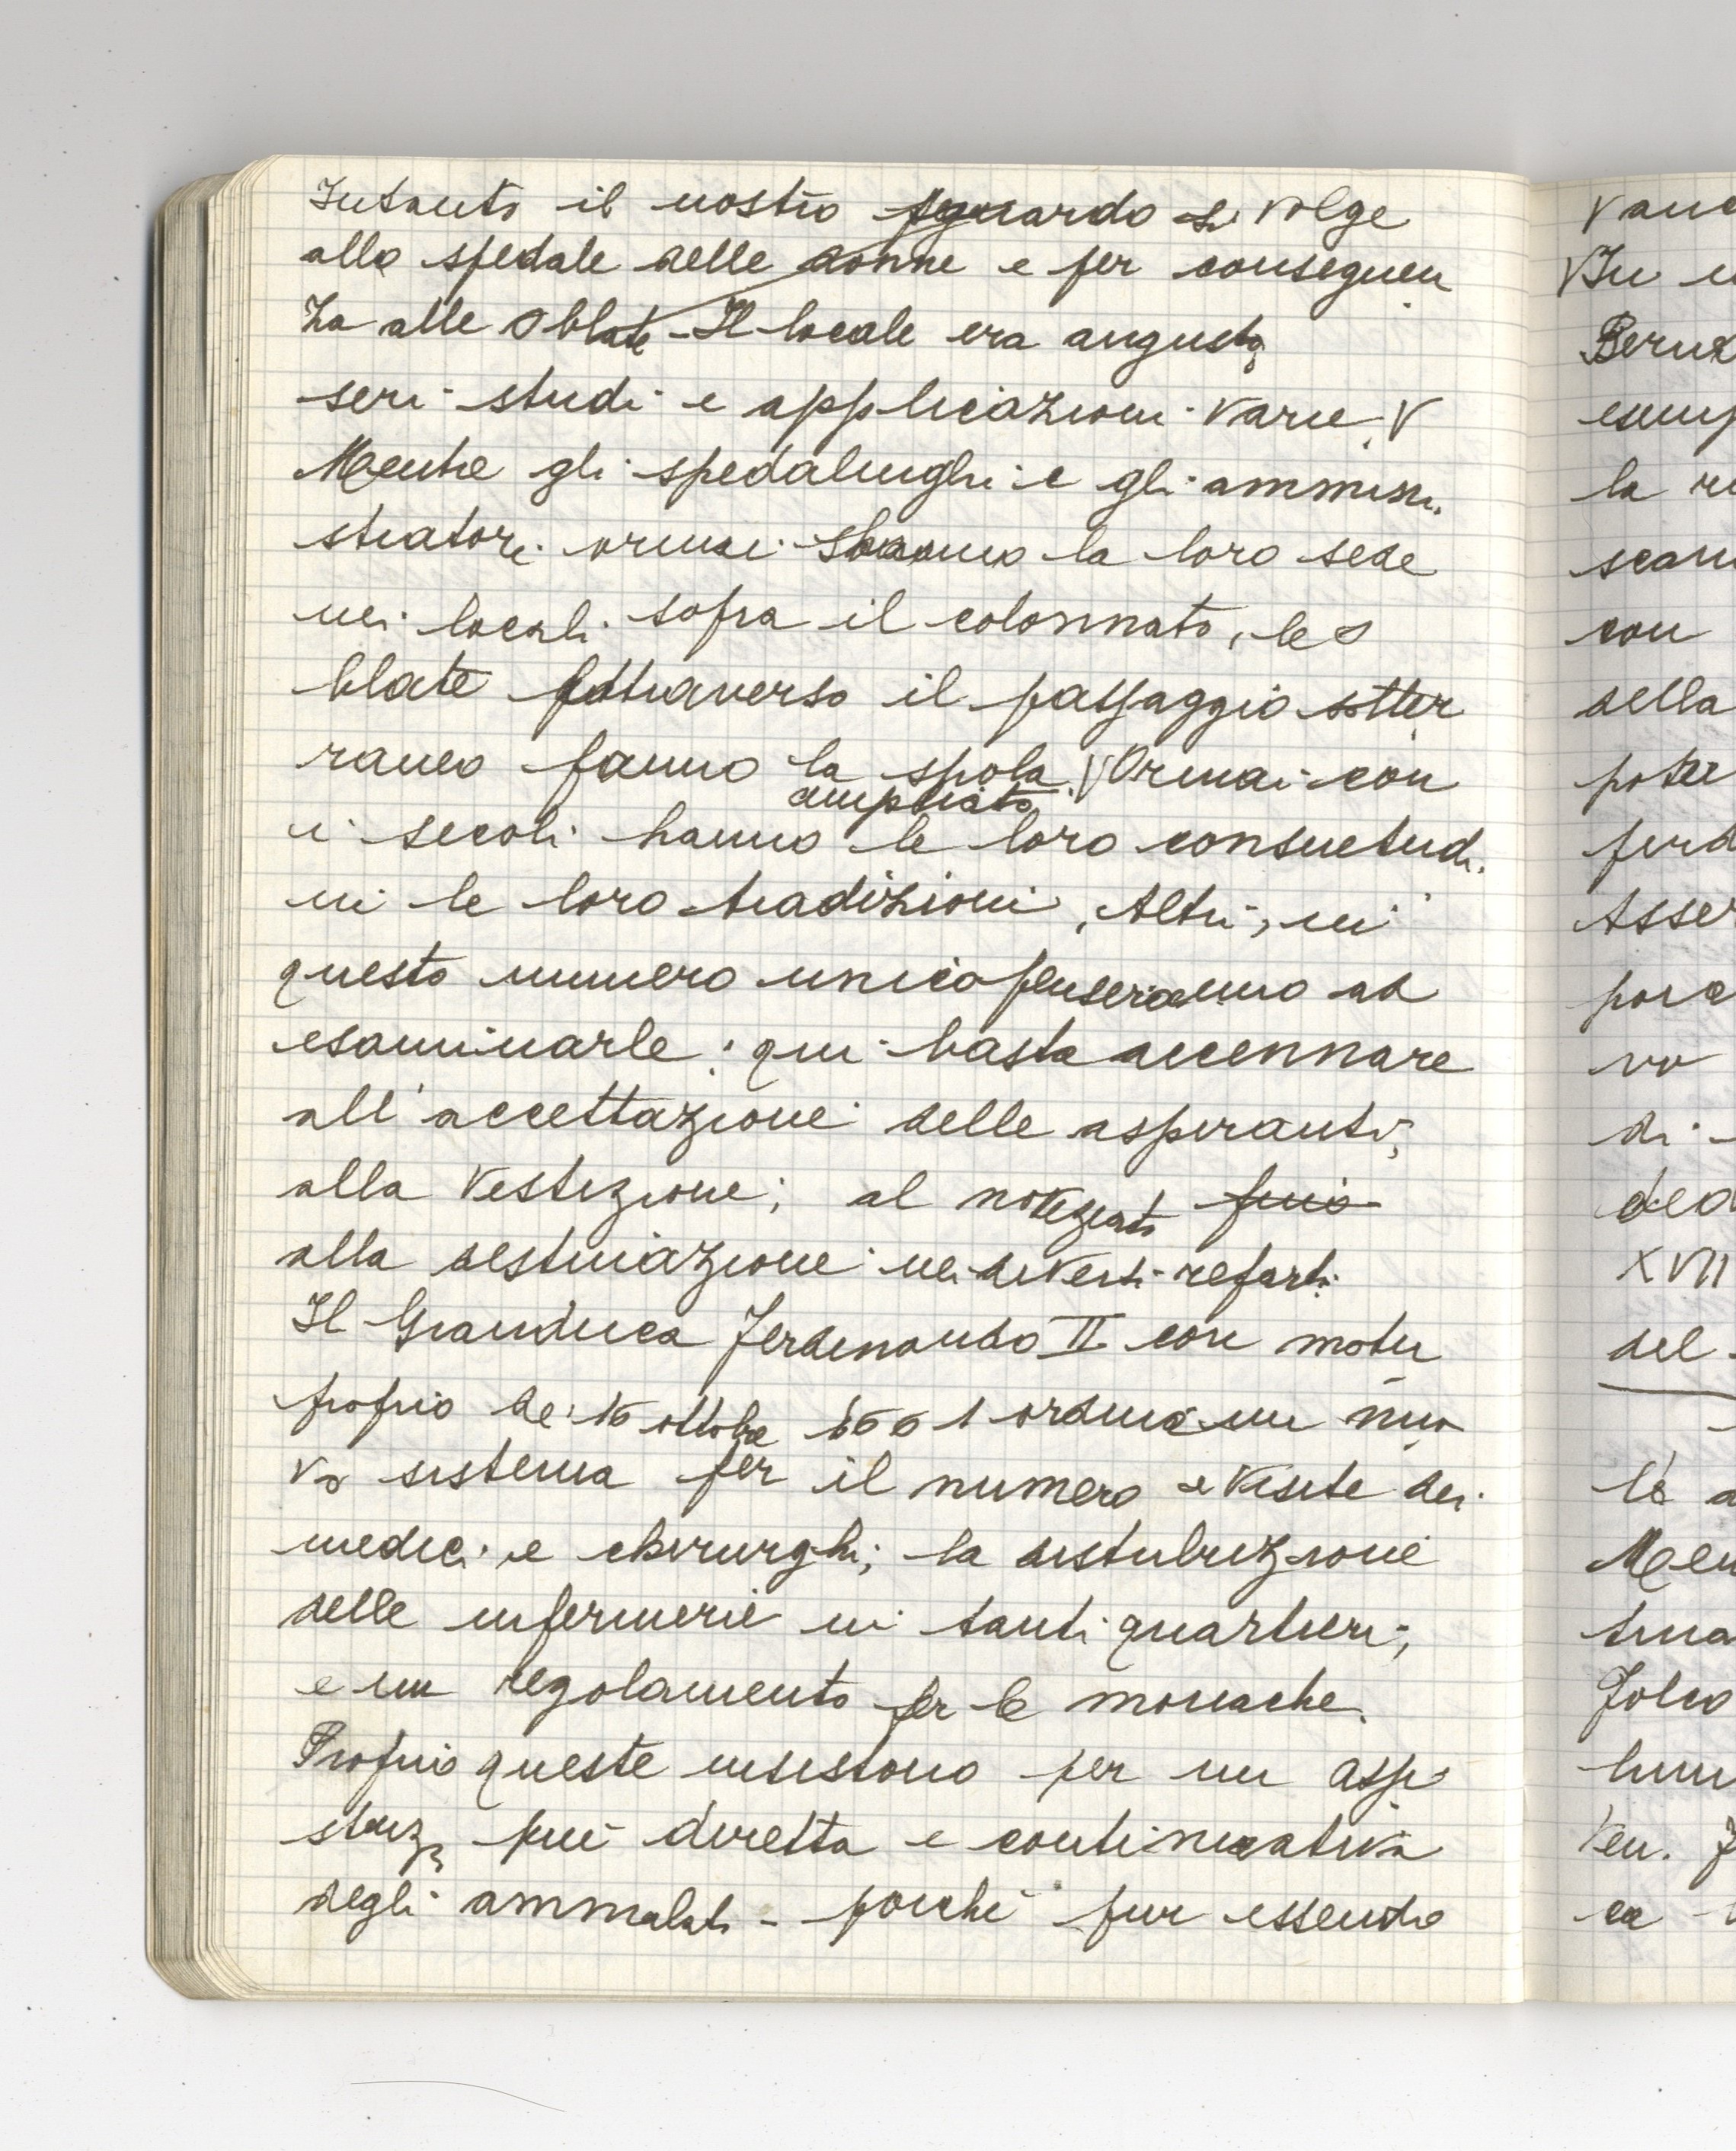 Intanto il nostro sguardo si volge
allo spedale delle donne e per conseguen
za alle Oblate - Il locale era angusto
seri studi e applicazioni varie. V
Mentre gli spedalinghi e gli ammini.
stratori ormai hanno la loro sede
nei locali sopra il colonnato, le O
blate attraverso il passaggio sotter
raneo fanno la spola. V Ormai con
ampliato
i secoli hanno le loro consuetudi.
ni le loro tradizioni, Altri, in
questo numero unico penseranno ad
esaminarle: qui basta accennare
all'accettazione delle aspiranti;
alla vestizione; al noviziato fino
alla destinazione nei diversi reparti.
Il Granduca Ferdinando II con motu
proprio de' 16 ottobre 1661 ordina un nuo
vo sistema per il numero e visite dei
medici e chirurghi; la distribuzione
delle infermerie in tanti quartieri;
e un regolamento per le monache.
Proprio queste insistono per un assi
stenza più diretta e continuativa
degli ammalati - poiché pur essendo
vane
V In
Bern
esemp
la
con
della
poter
perd
Asse
vo
di -
XVII
del -